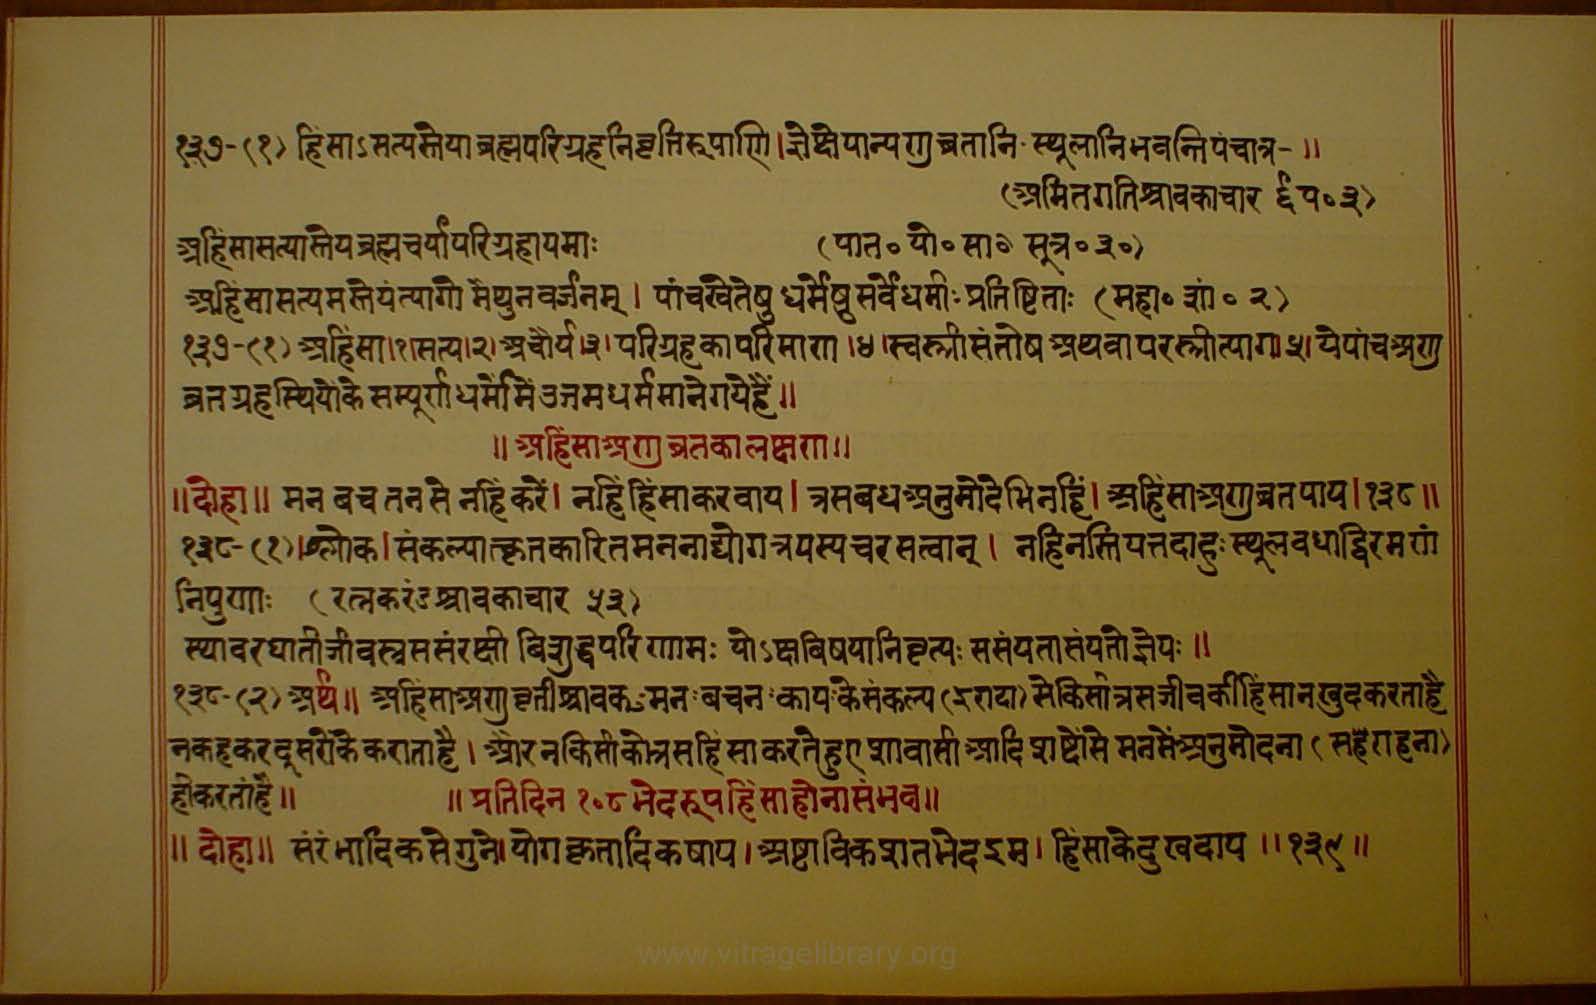 १३७-(१) हिंसाऽसत्यस्तेयाब्रह्मपरिग्रहनिवृत्तिरूपाणि। ज्ञेयान्यणुव्रतानि स्थूलानि भवन्ति पंचात्र- ॥
(अमितगतिश्रावकाचार ६ प॰ ३)
अहिंसासत्यास्तेयब्रह्मचर्यापरिग्रहायमाः (पात॰ यो॰ सा॰ सूत्र॰ ३०)
अहिंसासत्यमस्तेयंत्यागो मैथुनवर्जनम्। पांचस्वेतेषु धर्मेषु सर्वेधर्माः प्रतिष्टिताः (महा॰ शां॰ २)
१३७-(१) अहिंसा।१।सत्य।२। अचौर्य।३। परिग्रहकापरिमाण।४।स्वस्त्रीसंतोष अथवा परस्त्रीत्याग।५। येपांच अणु
व्रत ग्रहस्थियोंके सम्पूर्ण धर्मोंमें उत्तमधर्म मानेगयेहैं॥
॥ अहिंसाअणुव्रतकालक्षण॥
॥दोहा॥ मन बच तन से नहिं करें। नहिं हिंसा करवाय। त्रसबध अनुमोदे भि नहिं। अहिंसाअणुव्रत पाय।१३८॥
१३८-(१)।श्लोक। संकल्पात्कृतकारितमननाद्योगत्रयस्यचरसत्वान्। नहिनस्तियत्तदाहुः स्थूलवधाद्विरमणं
निपुणाः (रत्नकरंडश्रावकाचार ५३)
स्थावरघातीजीवस्त्रससंरक्षी बिशुद्धपरिणामः योऽक्षबिषयानिवृत्यः ससंयतासंयतो ज्ञेयः ॥
१३८-(२) अर्थ॥ अहिंसाअणुव्रतीश्रावक मनः बचनः कायःके संकल्प (इरादा) सेकिसीत्रसजीवकी हिंसा न खुदकरताहै
नकहकर दूसरोंके कराताहै। और नकिसीकोत्रसहिंसा करतेहुए शावासी आदि शब्दोंसे मनसेंअनुमोदना (सहराहना)
हीकरताहै॥ ॥ प्रतिदिन १०८ भेदरूप हिंसाहोनासंभव॥
॥ दोहा॥ संरंभादिकसेगुने। योग कृतादि कषाय। अष्टाविकशत भेद इम। हिंसाके दुखदाय ॥१३९॥
www.vitragelibrary.org